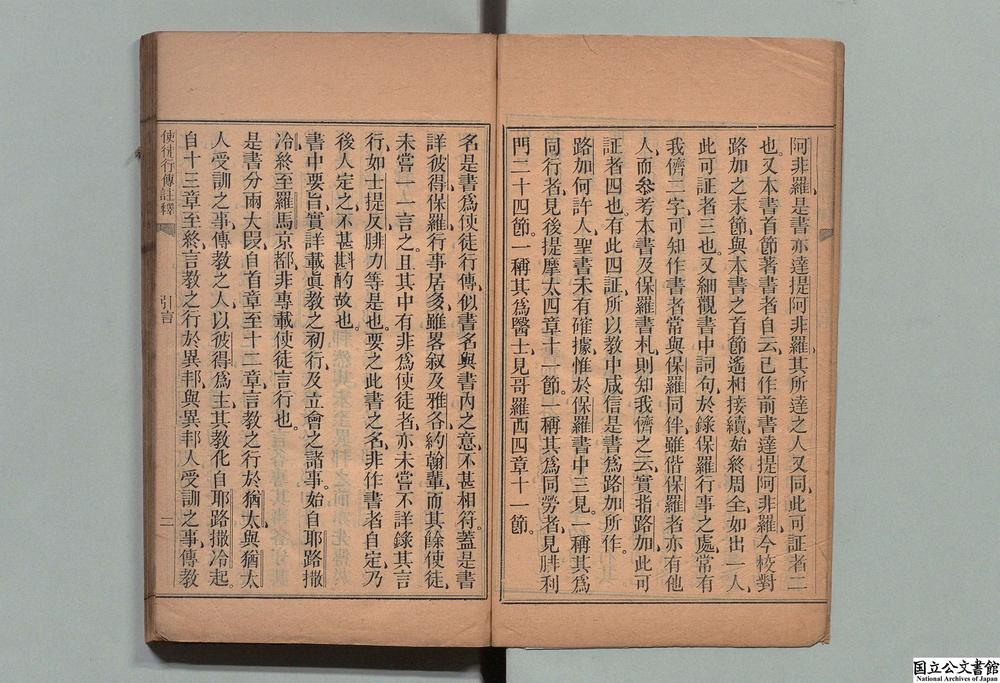 阿非羅是書亦達提阿非羅其所達之人又同此可証者二
也又本書首節著書者自云已作前書達提阿非羅今校對
路加之末節與本書之首節遙相接續始終周全如出一人
此可証者三也又細觀書中詞句於錄保羅行事之處常有
我儕二字可知作書者常與保羅同伴雖偕保羅者亦有他
人而參考本書及保羅書札則知我儕之云實指路加此可
証者四也有此四証所以教中咸信是書爲路加所作
路加何許人聖書未有確據惟於保羅書中三見一稱其爲
同行者見後提摩太四章十一節一稱其爲同勞者見腓利
門二十四節一稱其爲醫士見哥羅西四章十一節
名是書爲使徒行傳似書名與書內之意不甚相符蓋是書
詳彼得保羅行事居多雖畧叙及雅各約翰輩而其餘使徒
未嘗一一言之且其中有非爲使徒者亦未嘗不詳錄其言
行如士提反腓力等是也要之此書之名非作書者自定乃
後人定之不甚斟酌故也
書中要旨實詳載眞教之初行及立會之諸事始自耶路撒
冷終至羅馬京都非專載使徒言行也
是書分兩大段自首章至十二章言教之行於猶太與猶太
人受訓之事傳教之人以彼得爲主其教化自耶路撒冷起
自十三章至終言教之行於異邦與異邦人受訓之事傳教
使徒行傳註釋 引言 二
国立公文書館
National Archives of Japan